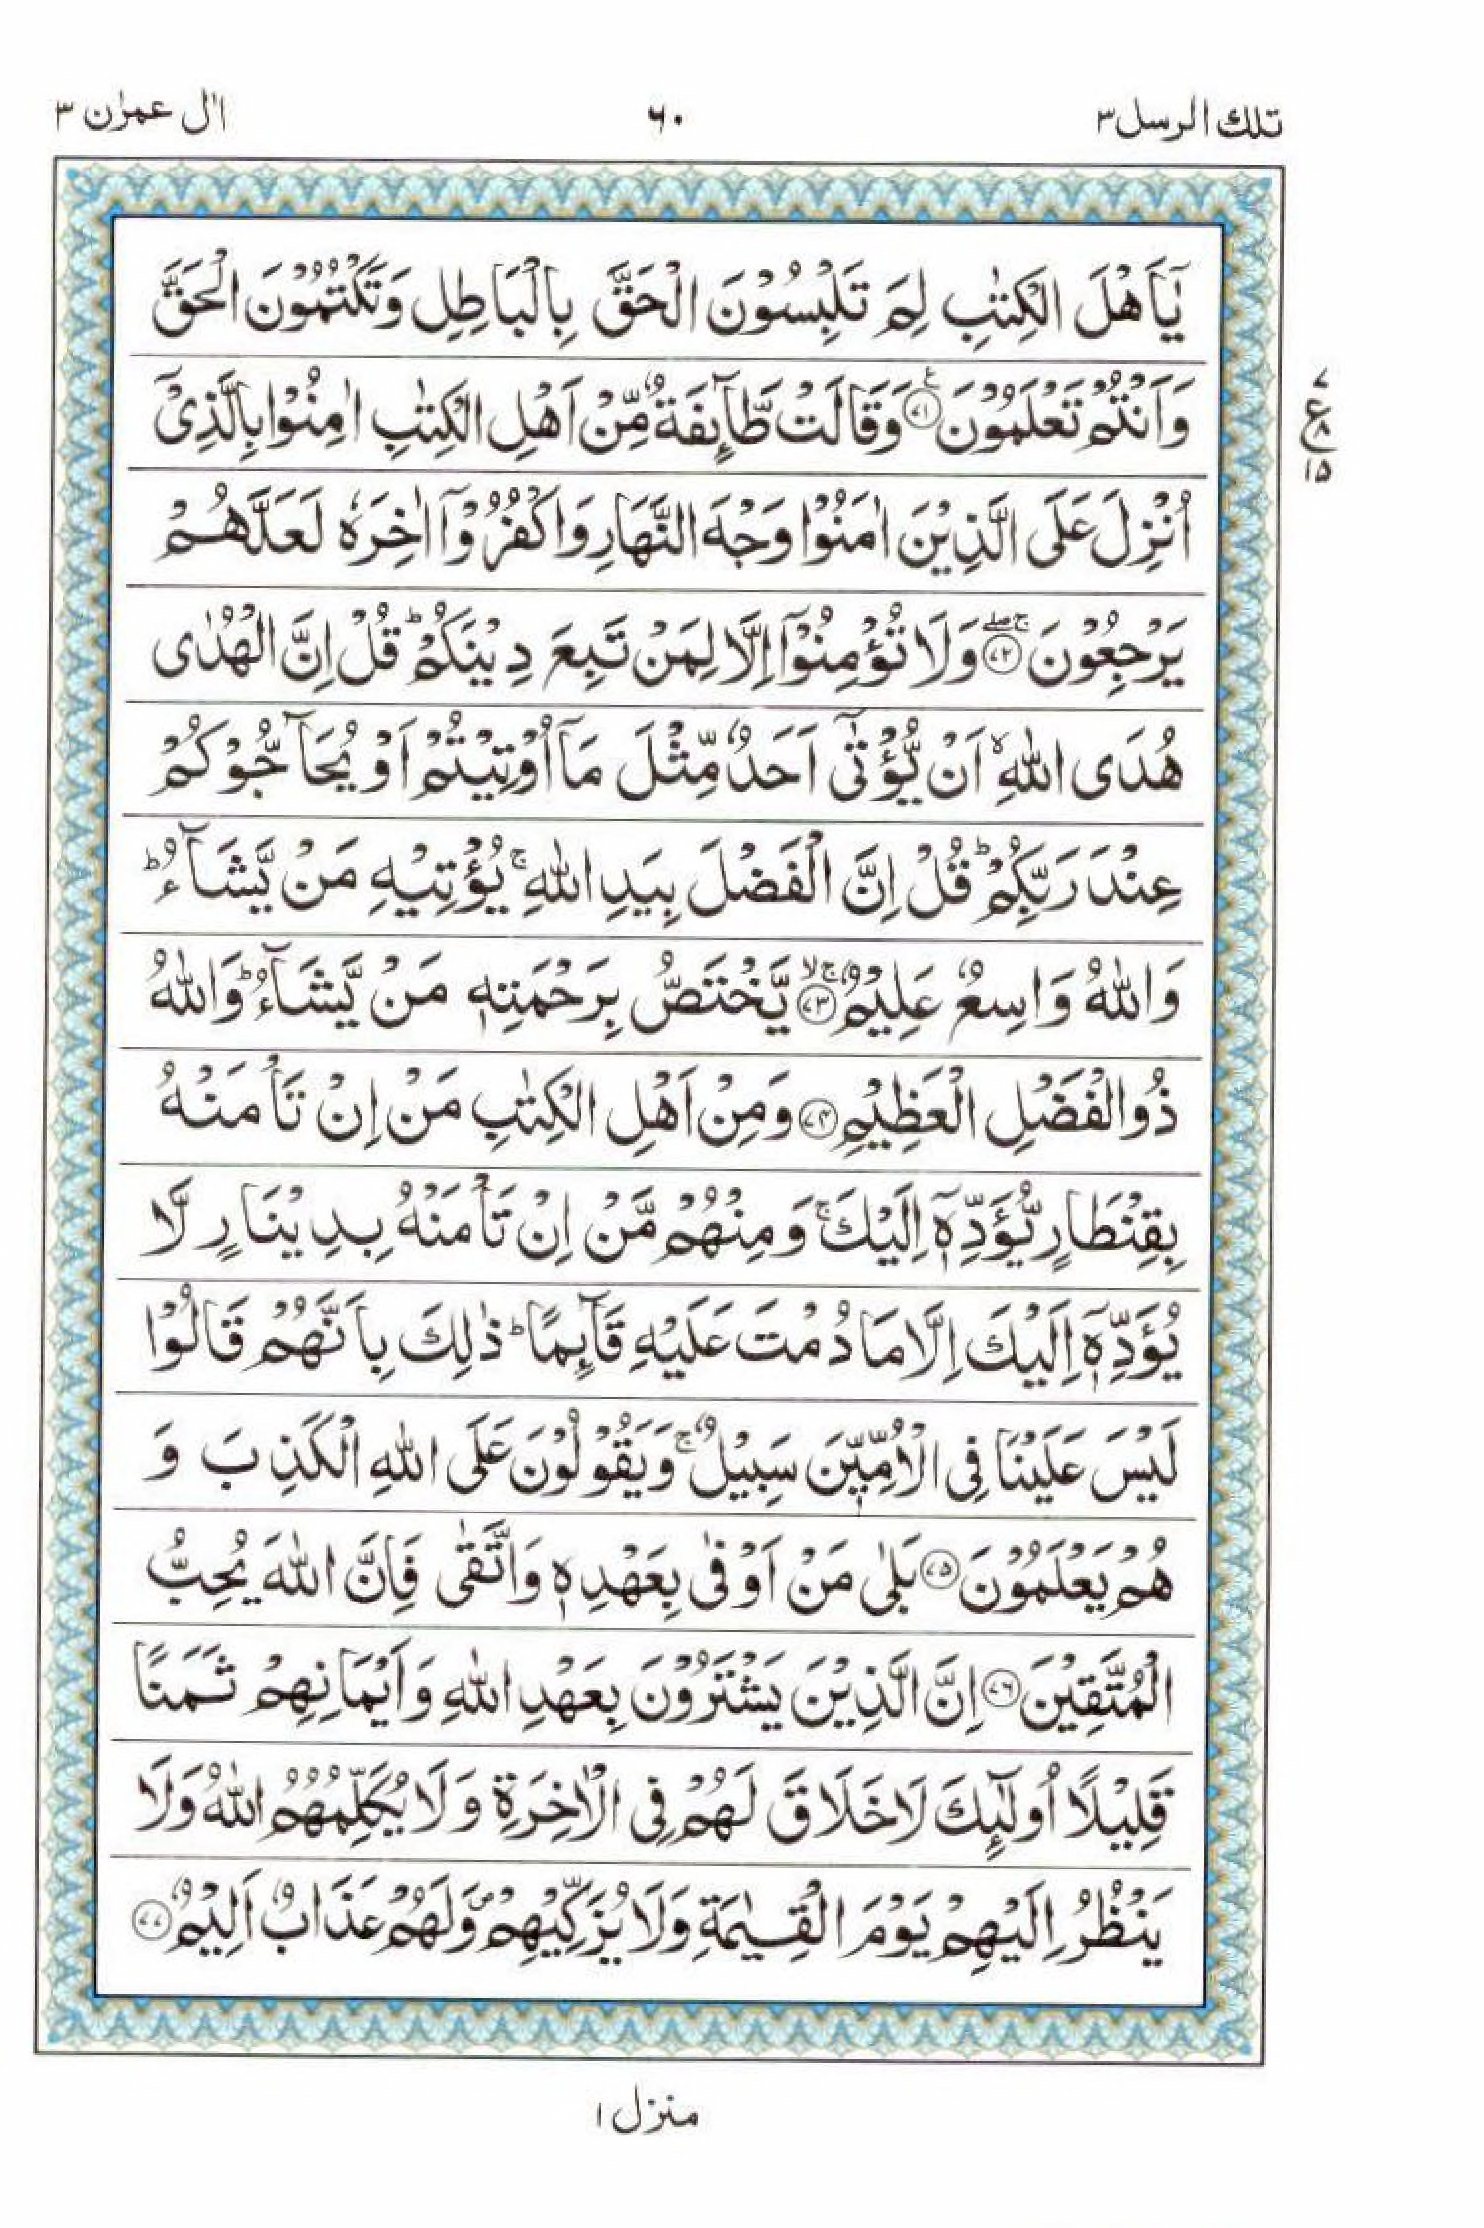 تلك الرسل ٣
٦٠
اٰل عمرٰن ٣
يٰۤاَهْلَ الْكِتٰبِ لِمَ تَلْبِسُوْنَ الْحَقَّ بِالْبَاطِلِ وَتَكْتُمُوْنَ الْحَقَّ
وَاَنْتُمْ تَعْلَمُوْنَ ﴿٧١﴾ وَقَالَتْ طَّآئِفَةٌ مِّنْ اَهْلِ الْكِتٰبِ اٰمِنُوْا بِالَّذِيْۤ
٧
ع
٨
١٥
اُنْزِلَ عَلَى الَّذِيْنَ اٰمَنُوْا وَجْهَ النَّهَارِ وَاكْفُرُوْۤا اٰخِرَهٗ لَعَلَّهُمْ
يَرْجِعُوْنَ ﴿٧٢﴾ۚۖ وَلَا تُؤْمِنُوْۤا اِلَّا لِمَنْ تَبِعَ دِيْنَكُمْ ؕ قُلْ اِنَّ الْهُدٰى
هُدَى اللّٰهِ ۙ اَنْ يُّؤْتٰۤى اَحَدٌ مِّثْلَ مَاۤ اُوْتِيْتُمْ اَوْ يُحَآجُّوْكُمْ
عِنْدَ رَبِّكُمْ ؕ قُلْ اِنَّ الْفَضْلَ بِيَدِ اللّٰهِ ۚ يُؤْتِيْهِ مَنْ يَّشَآءُ ؕ
وَاللّٰهُ وَاسِعٌ عَلِيْمٌ ﴿٧٣﴾ۚۙ يَّخْتَصُّ بِرَحْمَتِهٖ مَنْ يَّشَآءُ ؕ وَاللّٰهُ
ذُو الْفَضْلِ الْعَظِيْمِ ﴿٧٤﴾ وَمِنْ اَهْلِ الْكِتٰبِ مَنْ اِنْ تَاْمَنْهُ
بِقِنْطَارٍ يُّؤَدِّهٖۤ اِلَيْكَ ۚ وَمِنْهُمْ مَّنْ اِنْ تَاْمَنْهُ بِدِيْنَارٍ لَّا
يُؤَدِّهٖۤ اِلَيْكَ اِلَّا مَا دُمْتَ عَلَيْهِ قَآئِمًا ؕ ذٰلِكَ بِاَنَّهُمْ قَالُوْا
لَيْسَ عَلَيْنَا فِى الْاُمِّيّٖنَ سَبِيْلٌ ۚ وَيَقُوْلُوْنَ عَلَى اللّٰهِ الْكَذِبَ وَ
هُمْ يَعْلَمُوْنَ ﴿٧٥﴾ بَلٰى مَنْ اَوْفٰى بِعَهْدِهٖ وَاتَّقٰى فَاِنَّ اللّٰهَ يُحِبُّ
الْمُتَّقِيْنَ ﴿٧٦﴾ اِنَّ الَّذِيْنَ يَشْتَرُوْنَ بِعَهْدِ اللّٰهِ وَاَيْمَانِهِمْ ثَمَنًا
قَلِيْلًا اُولٰٓئِكَ لَا خَلَاقَ لَهُمْ فِى الْاٰخِرَةِ وَلَا يُكَلِّمُهُمُ اللّٰهُ وَلَا
يَنْظُرُ اِلَيْهِمْ يَوْمَ الْقِيٰمَةِ وَلَا يُزَكِّيْهِمْ ۪ وَلَهُمْ عَذَابٌ اَلِيْمٌ ﴿٧٧﴾
منزل ١